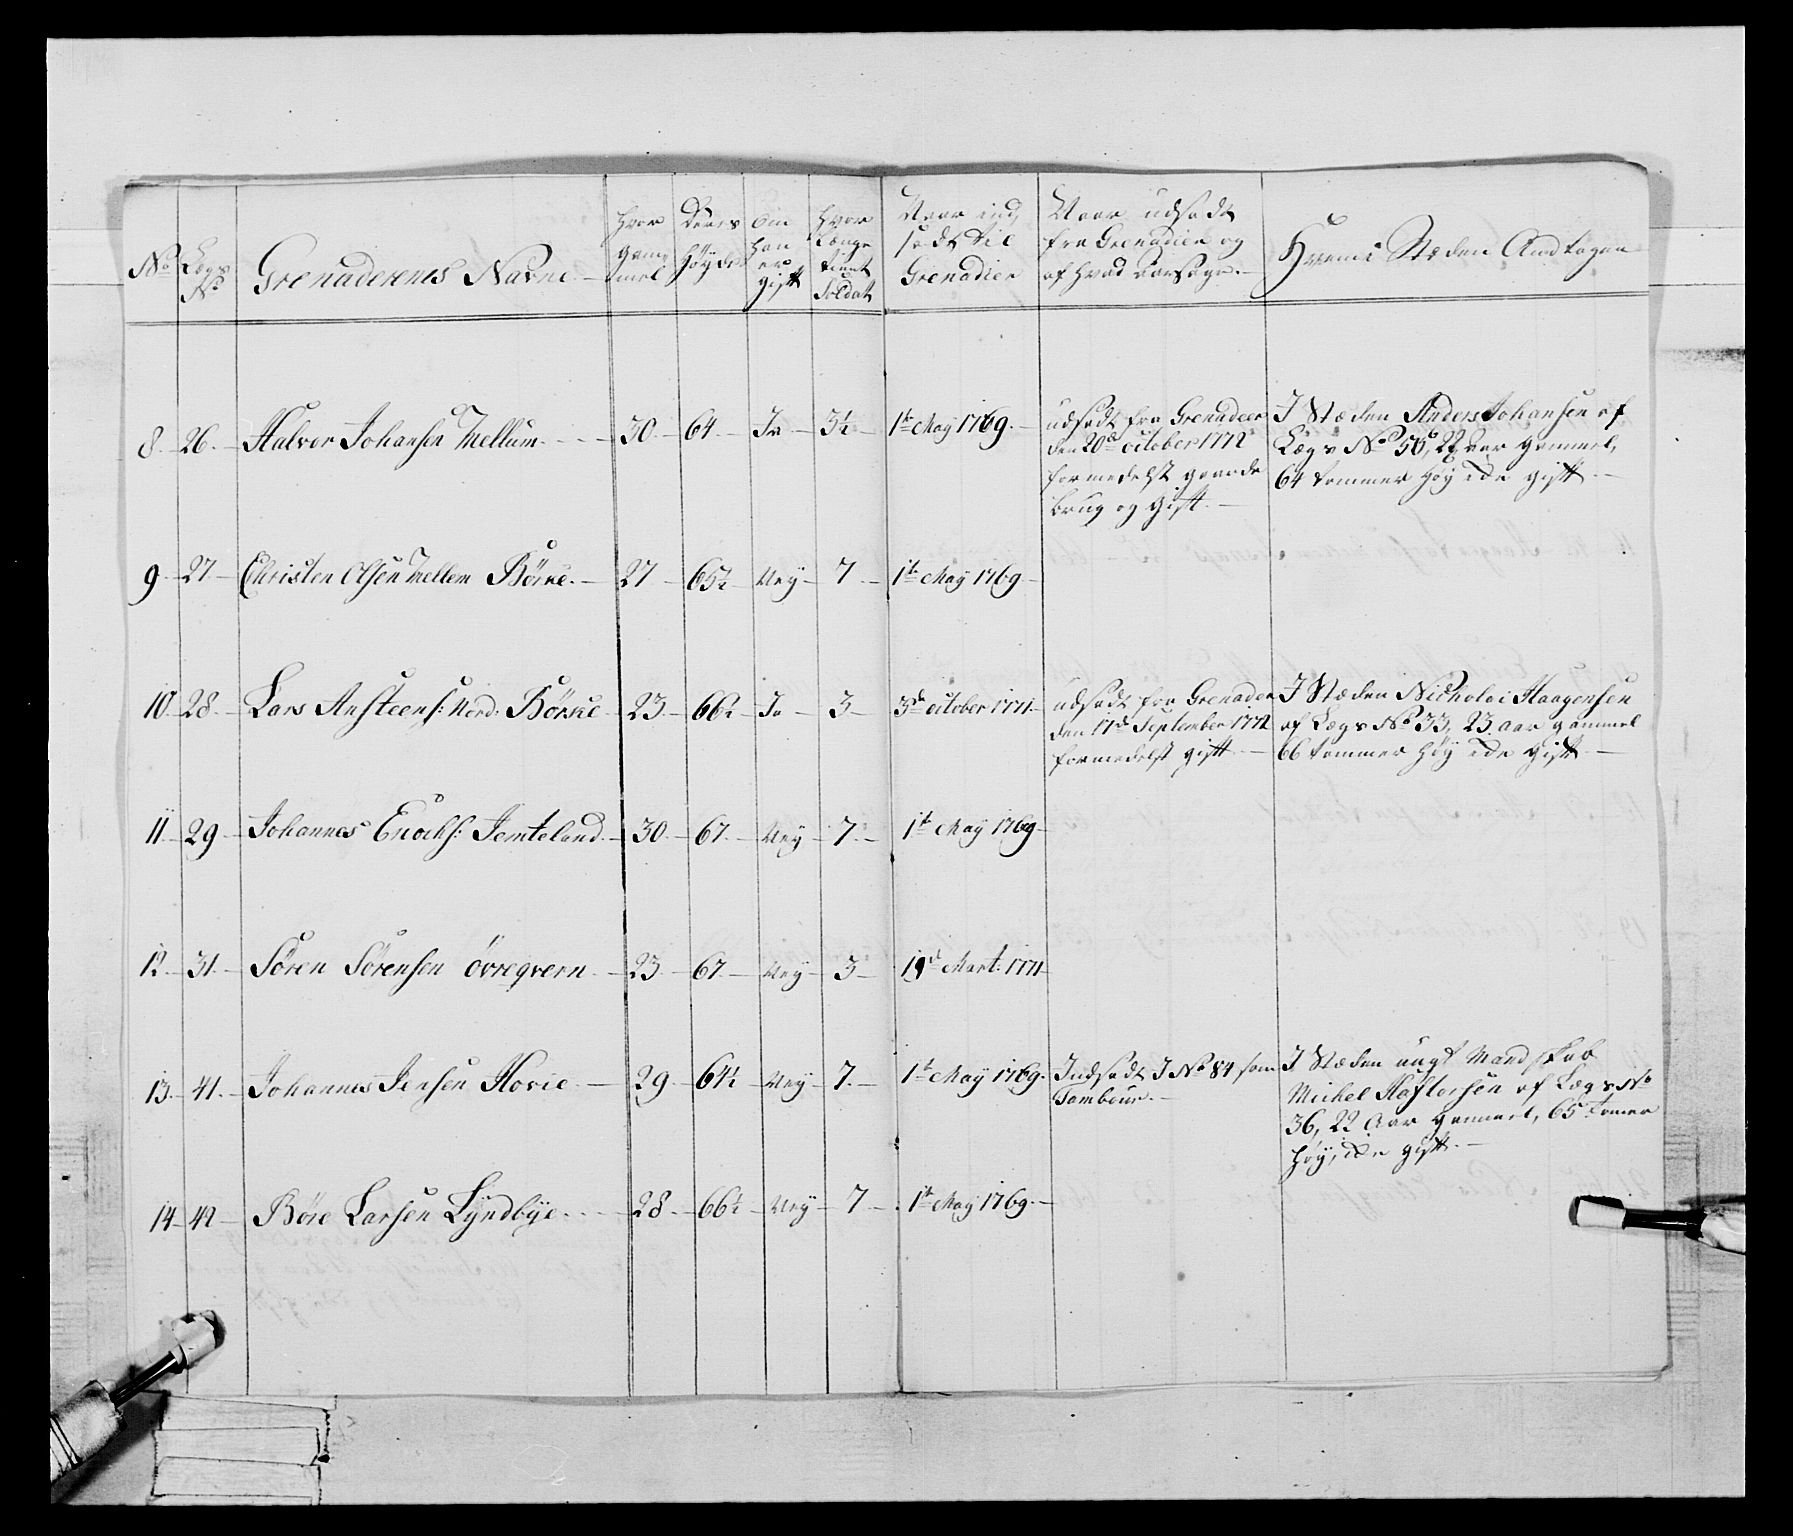 No
Lægs No
Grenaderernes Navne
Hvor gammel
Deres Høyde
Om han er gift
Hvor længe tient Soldat
Naar ind sadt til Grenadier
Naar udsadt fra Grenadier og af hvad aarsage
Hvem i Stæden Andtagen
8 26 Halvor Johansen Mellum 30 64 Ja 3½ 1te May 1769
udsadt fra Grenadeer
den 20de october 1772
formedelst gaarde
brug og gift
I Stæden Anders Johansen af
Lægs No 56, 22 aar gammel,
64 tommer høy ide gift
9 27 Christen Olsen Mellem Börke 27 65½ Ney 7 1te May 1769
10 28 Lars Ansteens: Nord: Börske 23 66½ Ja 3 3de october 1771
udsadt fra Grenadeer
den 17de September 1772
formedelst gift
I Stæden Nicholai Haagensen
af Lægs No 33, 23 aar gammel
66 tommer høy ide gift
11 29 Johannes Enochs: Jemteland 30 67 Ney 7 1te May 1769
12 31 Sören Sörensen övreqvern 23 67 Ney 3 19de Mart: 1771
13 41 Johannes Jensen Hovie 29 64½ Ney 7 1te May 1769
Indsadt I No 84 som
Tambour
I Stæden ungt Mandskab
Michel Haftorsen af Lægs No
36, 22 Aar gammel, 65 tomer
høy, ide gift
14 42 Böre Larsen Lÿndbÿe 28 66½ Ney 7 1te May 1769